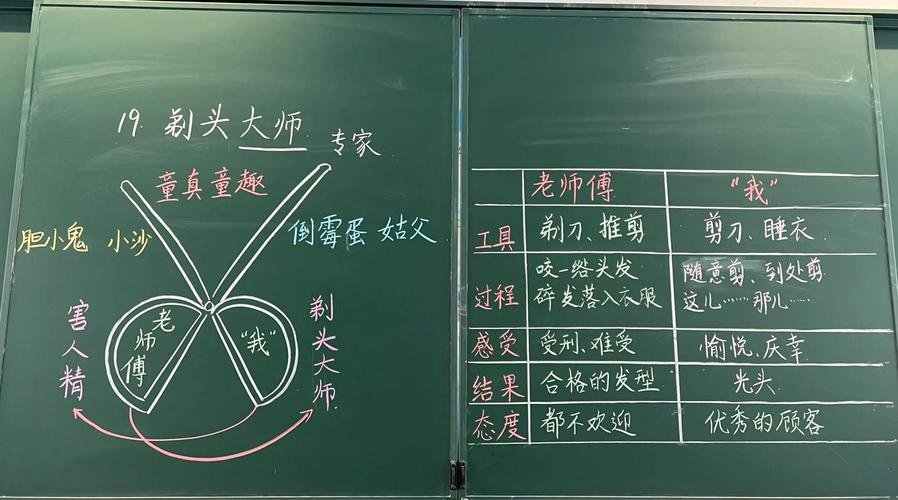 19. 剃头大师
专家
童真童趣
胆小鬼 小沙
倒霉蛋 姑父
害人精
老师傅
"我"
剃头大师
老师傅 "我"
工具 剃刀、推剪 剪刀、睡衣
过程 咬一绺头发 随意剪、到处剪
碎发落入衣服 这儿……那儿……
感受 受刑、难受 愉悦、庆幸
结果 合格的发型 光头
态度 都不欢迎 优秀的顾客